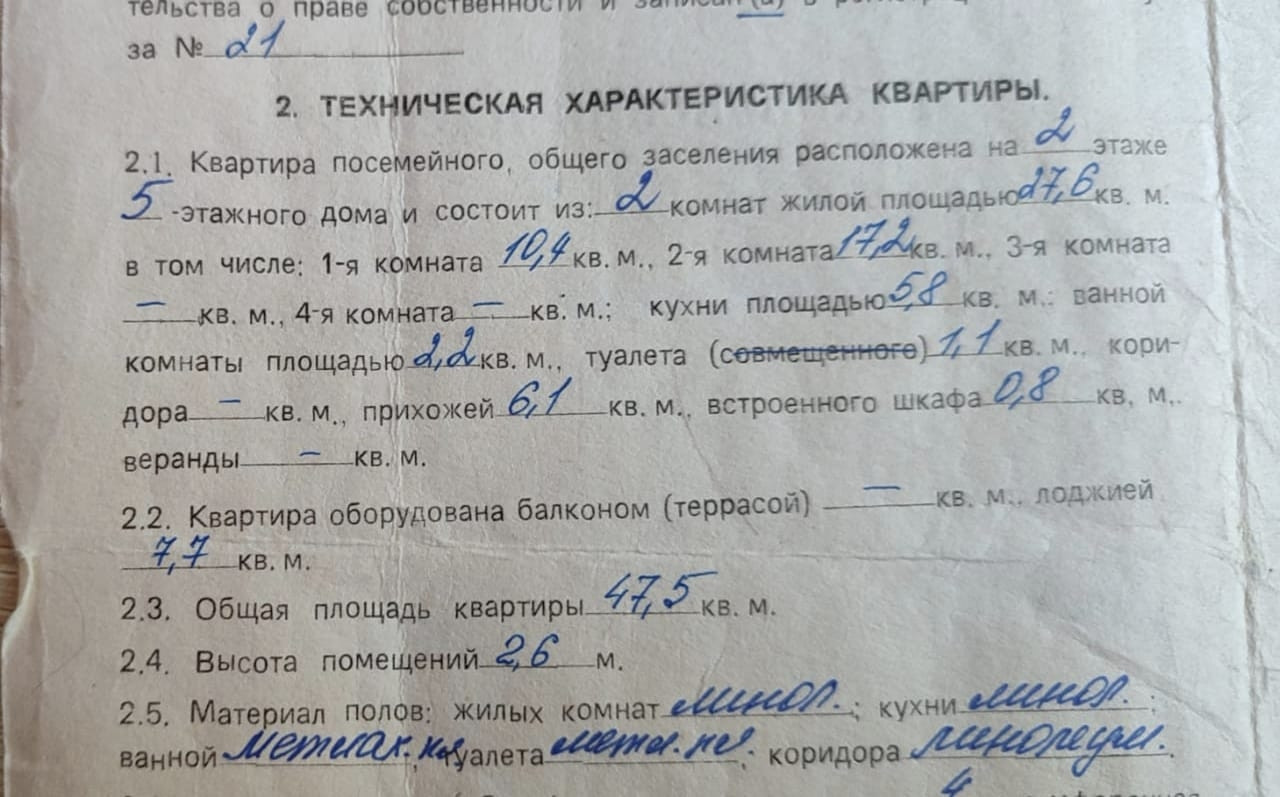 тельства о праве собственности и записан(а) в
за № 21
2. ТЕХНИЧЕСКАЯ ХАРАКТЕРИСТИКА КВАРТИРЫ.
2.1. Квартира посемейного, общего заселения расположена на 2 этаже
5 -этажного дома и состоит из: 2 комнат жилой площадью 27,6 кв. м.
в том числе: 1-я комната 10,4 кв. м., 2-я комната 17,2 кв. м., 3-я комната
— кв. м., 4-я комната — кв. м.; кухни площадью 5,8 кв. м.: ванной
комнаты площадью 2,2 кв. м., туалета (совмещенного) 1,1 кв. м., кори-
дора — кв. м., прихожей 6,1 кв. м., встроенного шкафа 0,8 кв. м,.
веранды — кв. м.
2.2. Квартира оборудована балконом (террасой) — кв. м., лоджией
7,7 кв. м.
2.3. Общая площадь квартиры 47,5 кв. м.
2.4. Высота помещений 2,6 м.
2.5. Материал полов: жилых комнат линол.; кухни линол.;
ванной метлах. пл., туалета метл. пл.; коридора линолеум.
4